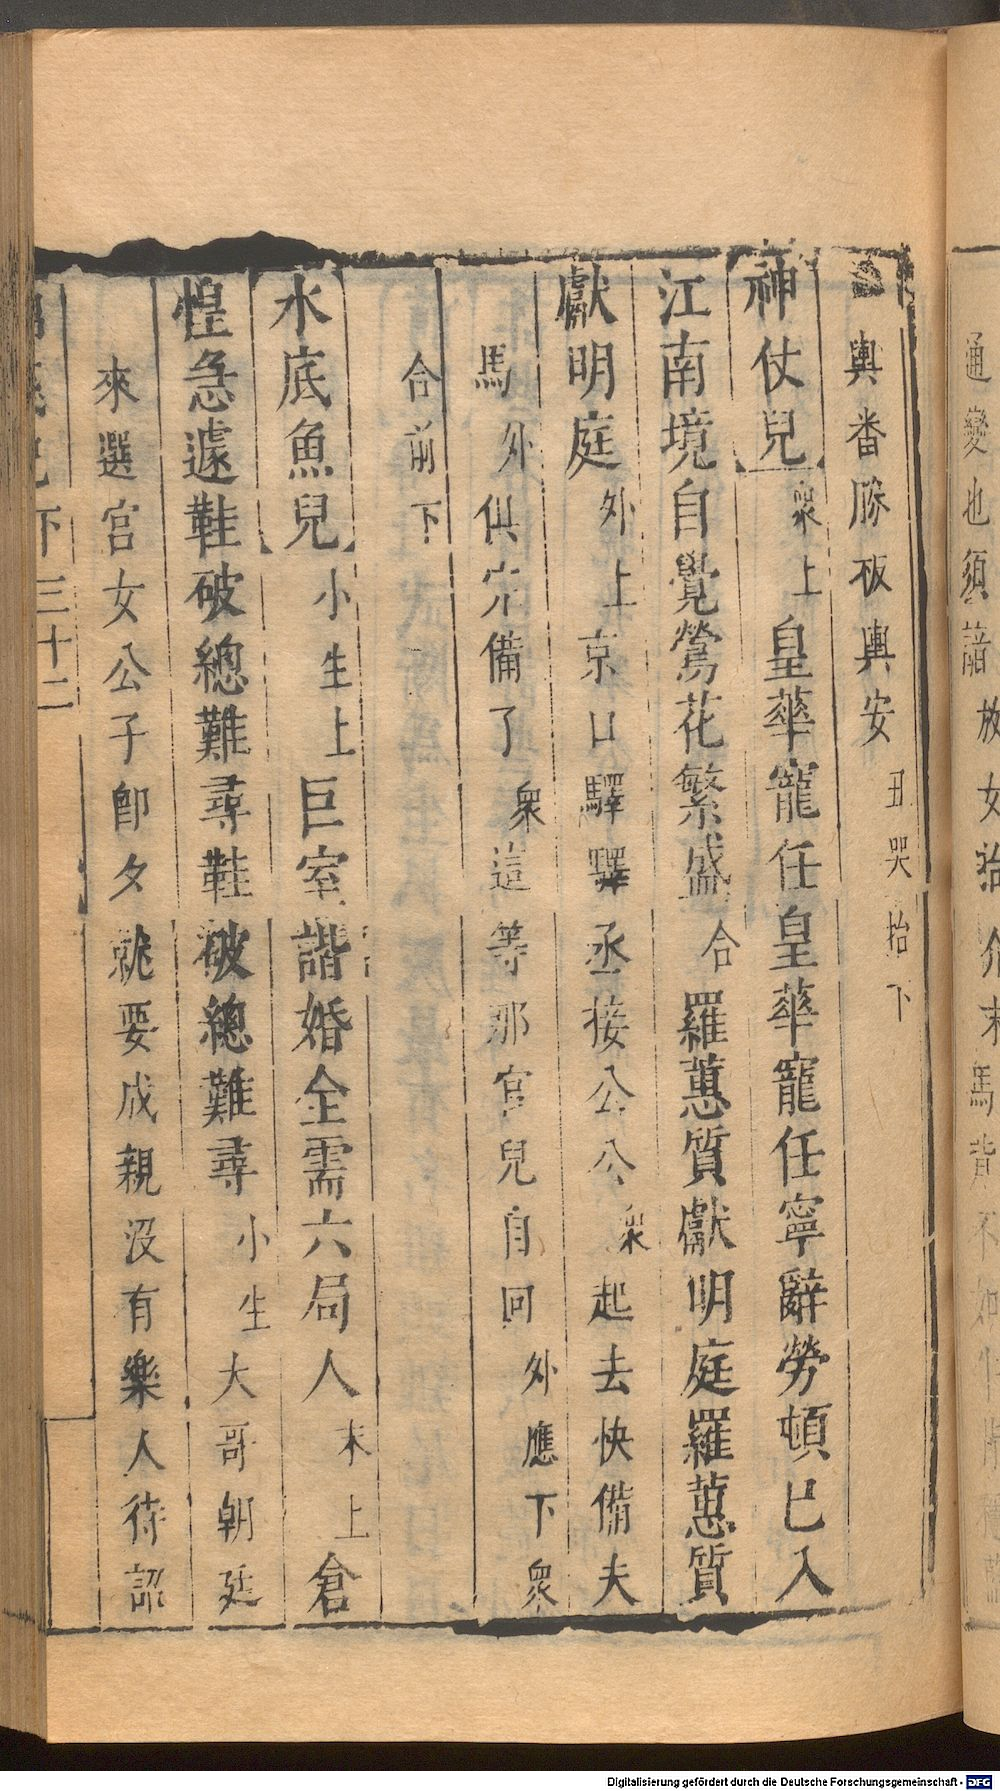 通變也須諳放女治介末馬背不如
輿畨勝板輿安丑哭抬下
神仗兒衆上皇華寵任皇華寵任寧辭勞頓已入
江南境自覺鶯花繁盛合羅蕙質獻明庭羅蕙質
獻明庭外上京口驛驛丞接公公衆起去快備夫
馬外俱完備了衆這等那官兒自回外應下衆
合前下
水底魚兒小生上巨室諧婚全需六局人末上倉
惶急遽鞋破總難尋鞋破總難尋小生大哥朝廷
來選宫女公子卽夕就要成親没有樂人待詔
下 三十二
Digitalisierung gefördert durch die Deutsche Forschungsgemeinschaft - DFG